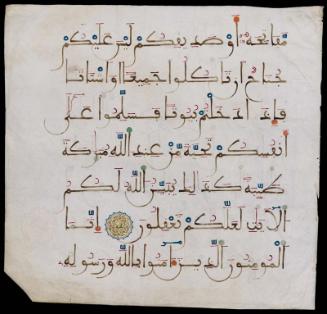 مفاتحه أو صديقكم ليس عليكم
جناح أن تاكلوا جميعا أو أشتاتا
فإذا دخلتم بيوتا فسلموا على
أنفسكم تحية من عند الله مبركة
طيبة كذلك يبين الله لكم
الأيت لعلكم تعقلون إنما
المومنون الذين ءامنوا بالله ورسوله